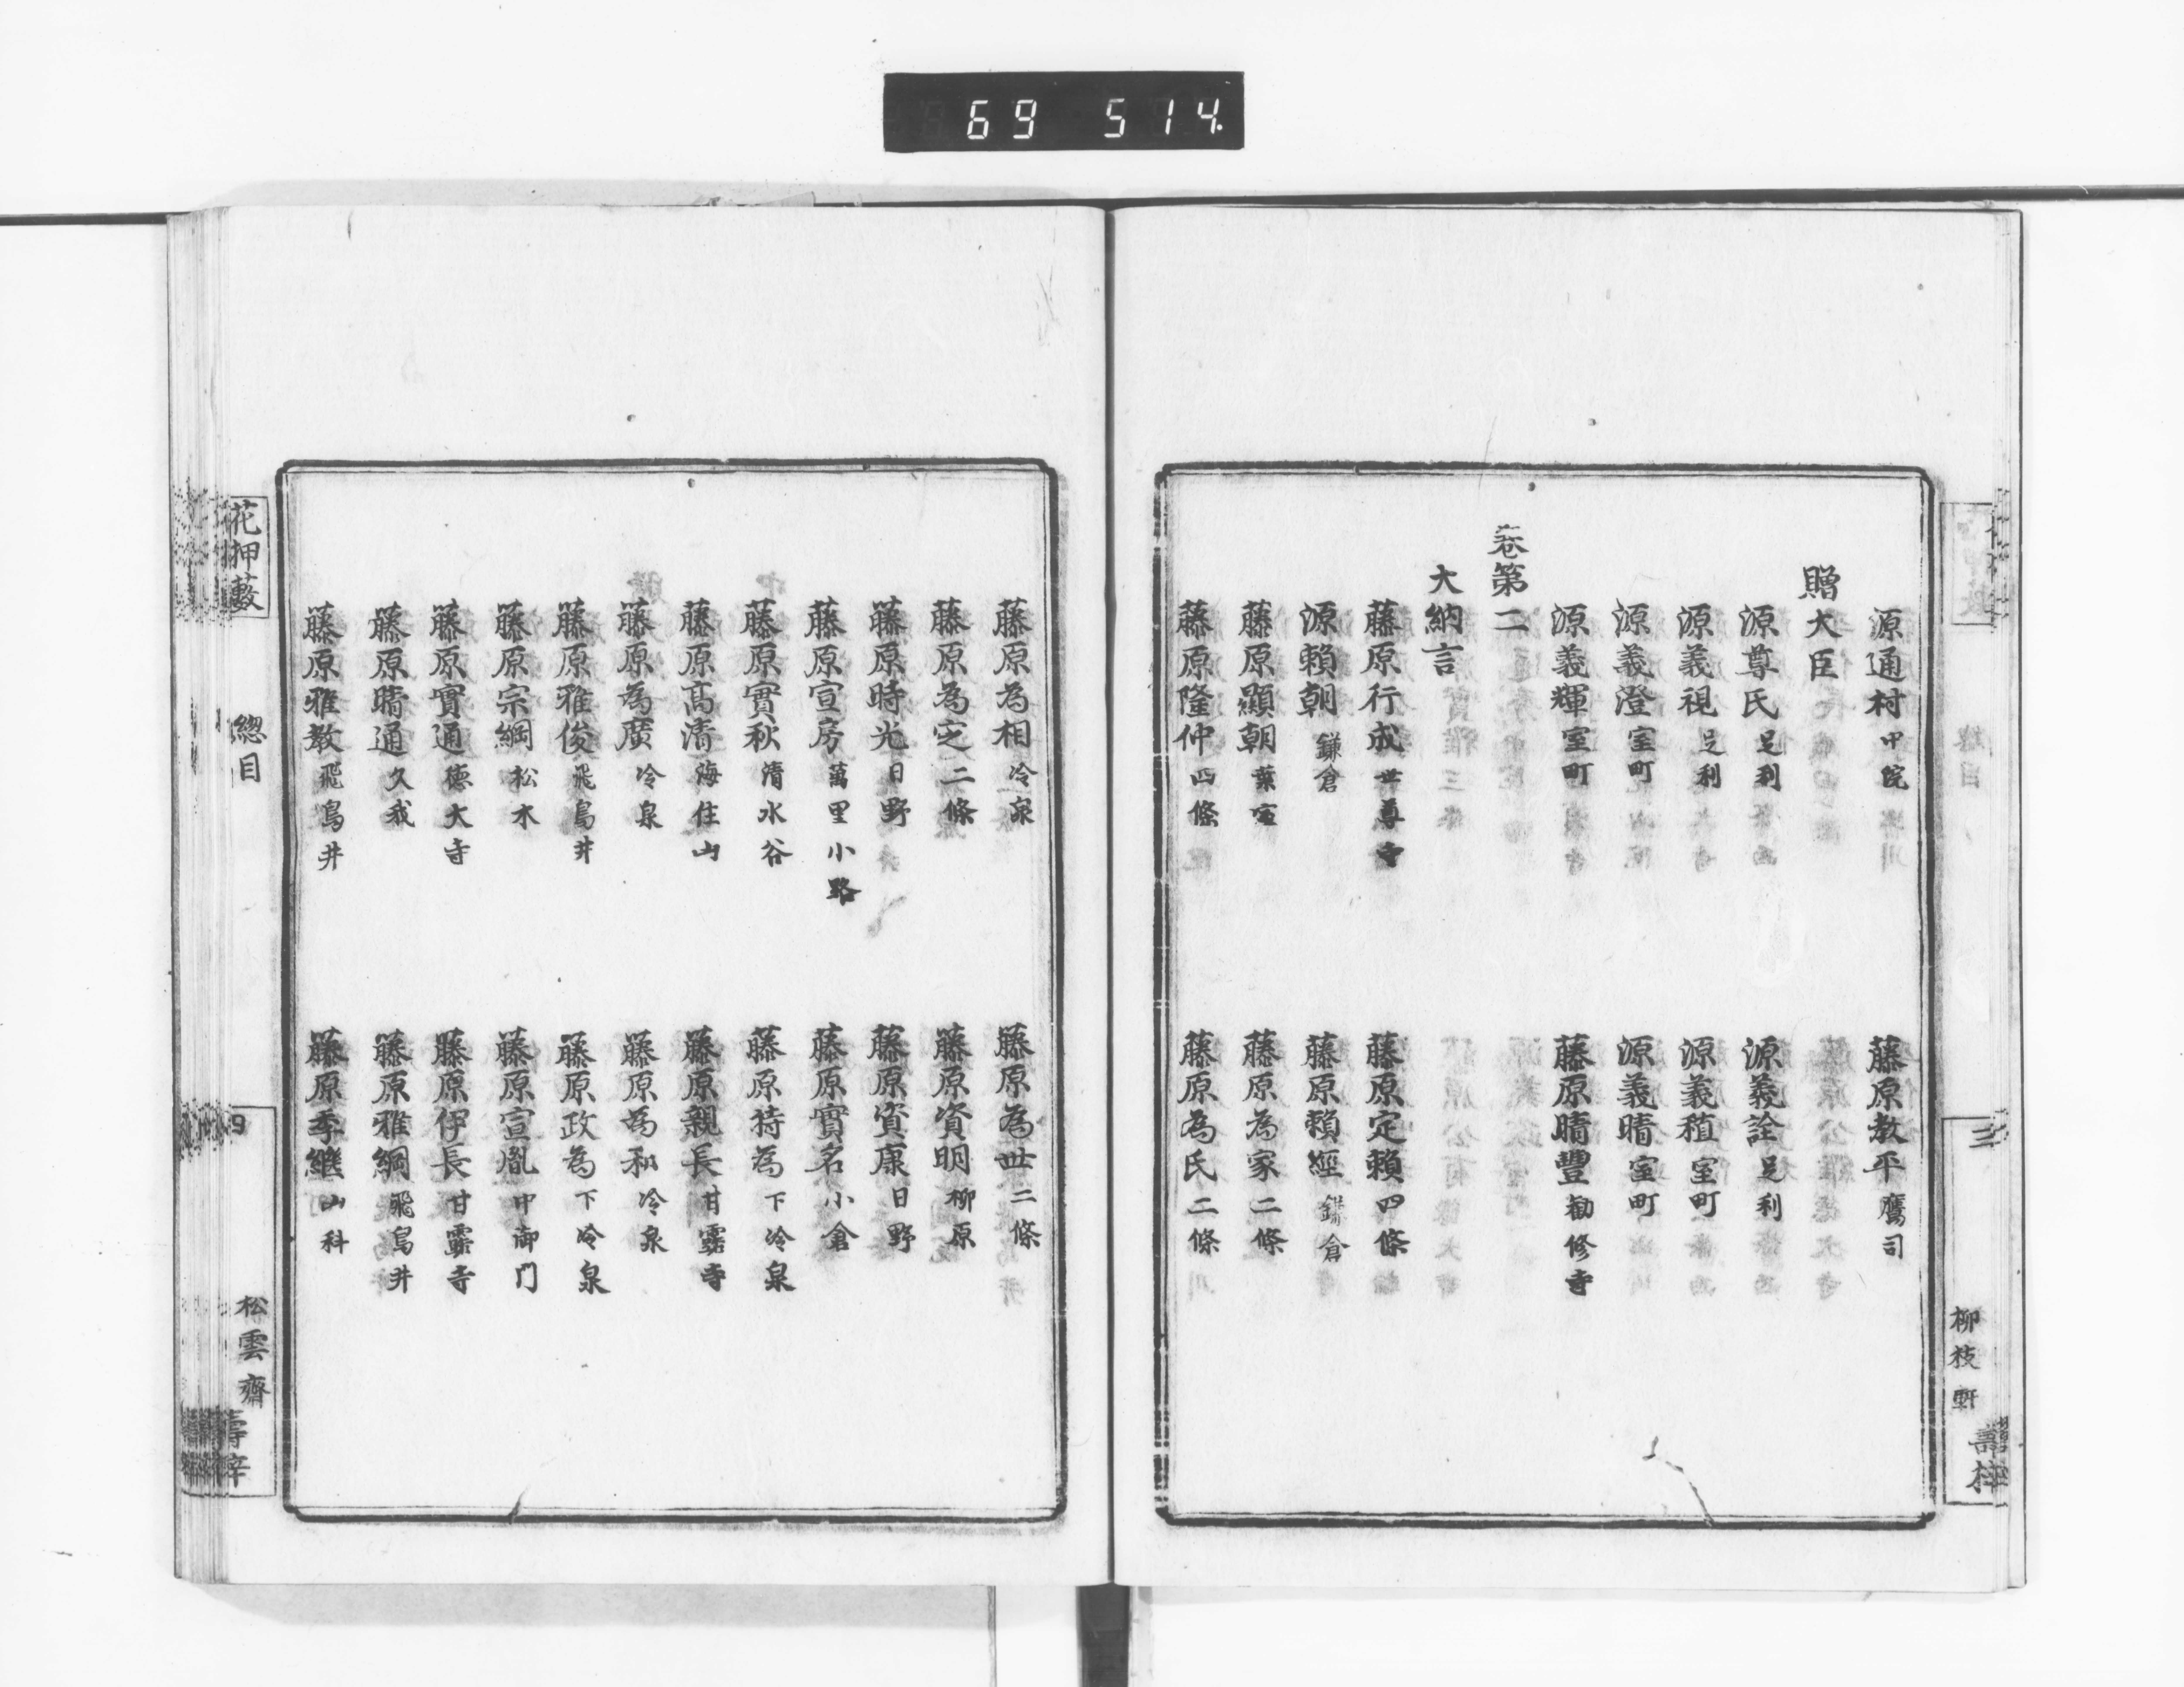 69 514.
源通村 中院
藤原教平 鷹司
贈大臣
源尊氏 足利
源義詮 足利
源義視 足利
源義稙 室町
源義澄 室町
源義晴 室町
源義輝 室町
藤原晴豐 勸修寺
卷第二
大納言
藤原行成 世尊寺
藤原定賴 四條
源賴朝 鎌倉
藤原賴經 鎌倉
藤原顯朝 葉室
藤原為家 二條
藤原隆仲 四條
藤原為氏 二條
三
柳枝軒
藤原為相 冷泉
藤原為世 二條
藤原為定 二條
藤原資明 柳原
藤原時光 日野
藤原資康 日野
藤原宣房 萬里小路
藤原實名 小倉
藤原實秋 清水谷
藤原持為 下冷泉
藤原高清 海住山
藤原親長 甘露寺
藤原為廣 冷泉
藤原為和 冷泉
藤原雅俊 飛鳥井
藤原政為 下冷泉
藤原宗綱 松木
藤原宣胤 中御門
藤原實通 德大寺
藤原伊長 甘露寺
藤原晴通 久我
藤原雅綱 飛鳥井
藤原雅教 飛鳥井
藤原季繼 山科
花押藪
總目
四
松雲齋
壽梓